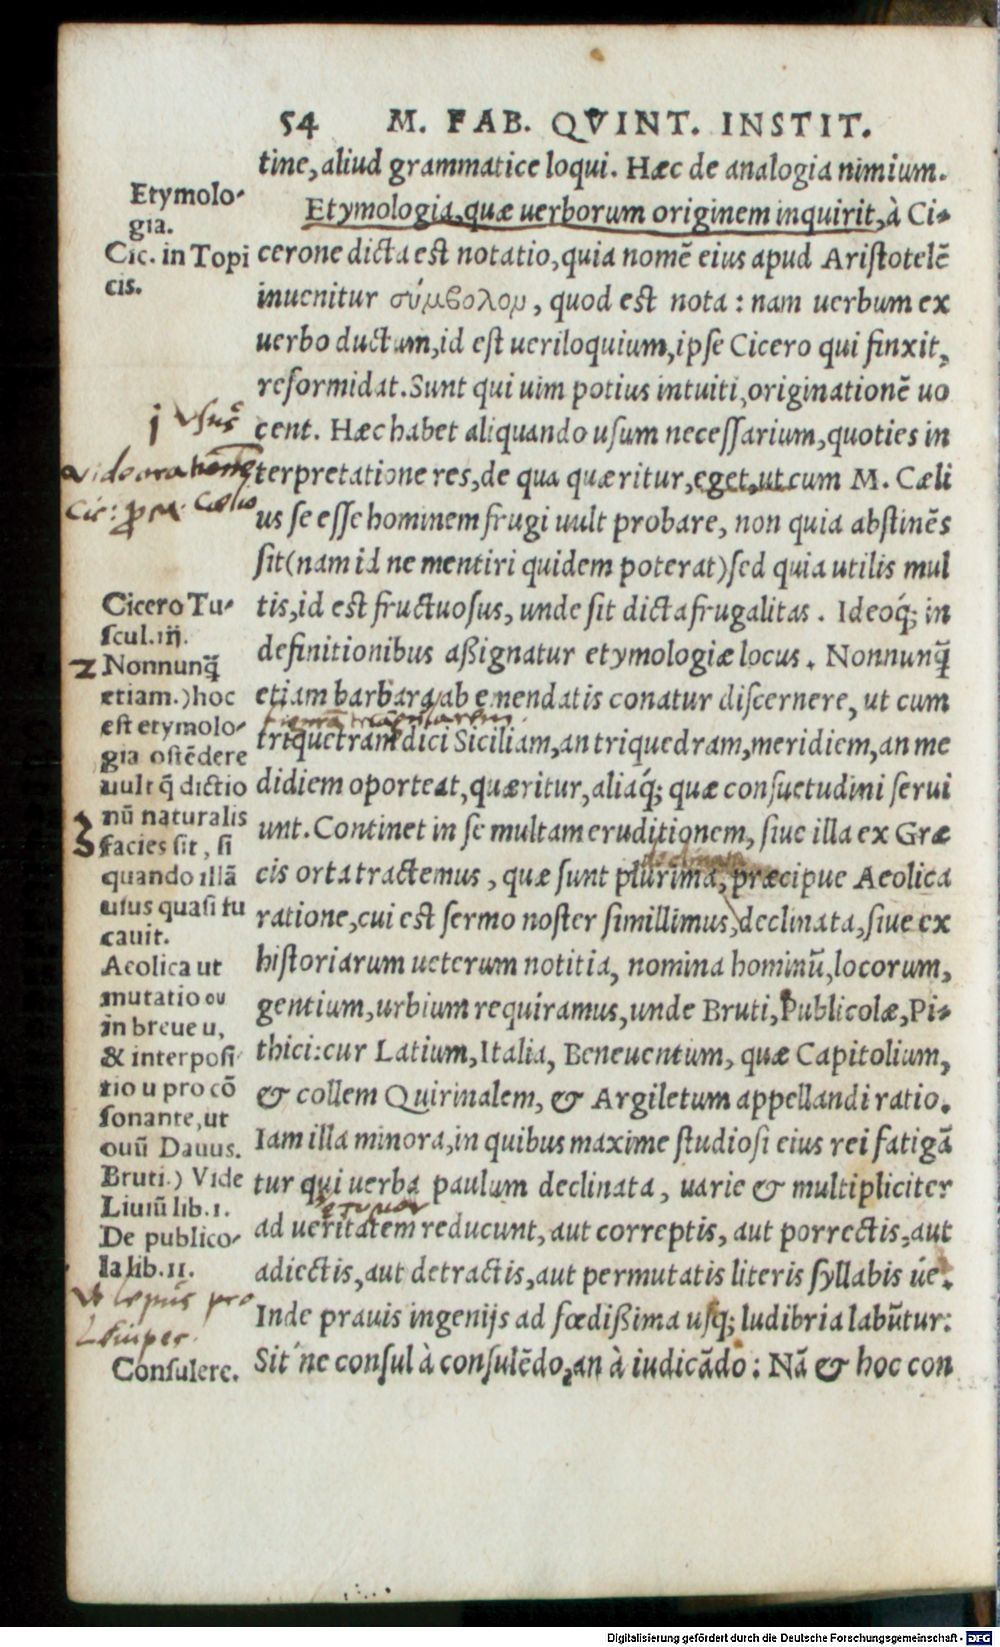 54 M. FAB. QVINT. INSTIT.
tine, aliud grammatice loqui. Hæc de analogia nimium.
Etymologia, quæ uerborum originem inquirit, à Ci-
cerone dicta est notatio, quia nomē eius apud Aristotelē
inuenitur σύμβολον, quod est nota: nam uerbum ex
uerbo ductum, id est ueriloquium, ipse Cicero qui finxit,
reformidat. Sunt qui uim potius intuiti, originationē uo
cent. Hæc habet aliquando usum necessarium, quoties in
terpretatione res, de qua quæritur, eget, ut cum M. Cæli
us se esse hominem frugi uult probare, non quia abstinēs
sit (nam id ne mentiri quidem poterat) sed quia utilis mul
tis, id est fructuosus, unde sit dicta frugalitas. Ideoq́; in
definitionibus aßignatur etymologiæ locus. Nonnunq̃
etiam barbara ab emendatis conatur discernere, ut cum
triquetram dici Siciliam, an triquedram, meridiem, an me
didiem oporteat, quæritur, aliaq́; quæ consuetudini serui
unt. Continet in se multam eruditionem, siue illa ex Græ
cis orta tractemus, quæ sunt plurima, præcipue Aeolica
ratione, cui est sermo noster simillimus, declinata, siue ex
historiarum ueterum notitia, nomina hominū, locorum,
gentium, urbium requiramus, unde Bruti, Publicolæ, Pi-
thici: cur Latium, Italia, Beneuentum, quæ Capitolium,
& collem Quirinalem, & Argiletum appellandi ratio.
Iam illa minora, in quibus maxime studiosi eius rei fatigā
tur qui uerba paulum declinata, uarie & multipliciter
ad ueritatem reducunt, aut correptis, aut porrectis, aut
adiectis, aut detractis, aut permutatis literis syllabis úe.
Inde prauis ingenijs ad fœdißima usq; ludibria labūtur:
Sit ne consul à consulēdo, an à iudicādo: Nā & hoc con
Etymolo-
gia.
Cic. in Topi
cis.
1 Vsus
Vide orationē
Cic: p M. Cælio
Cicero Tu-
scul. iij.
2 Nonnunq̃
etiam.) hoc
est etymolo-
gia ostēdere
uult q̃ dictio
nū naturalis
3 facies sit, si
quando illā
usus quasi fu
cauit.
Aeolica ut
mutatio ου
in breue u,
& interposi-
tio u pro cō
sonante, ut
ouū Dauus.
Bruti.) Vide
Liuiū lib. 1.
De publico-
la lib. 11.
Vt lepus pro
Leuiper.
Consulere.
declinata
ετυμον